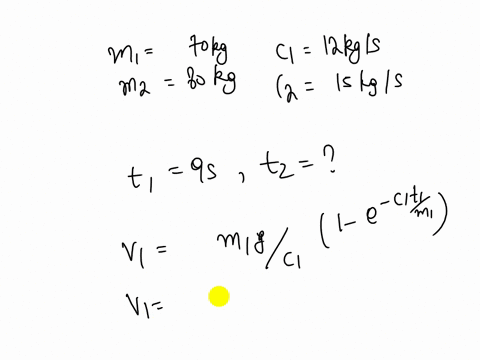 m1 = 70kg c1 = 12kg/s
m2 = 80 kg c2 = 15 kg/s
t1 = 9s , t2 = ?
v1 = m1g/c1 (1 - e^-c1t1/m1)
v1 =